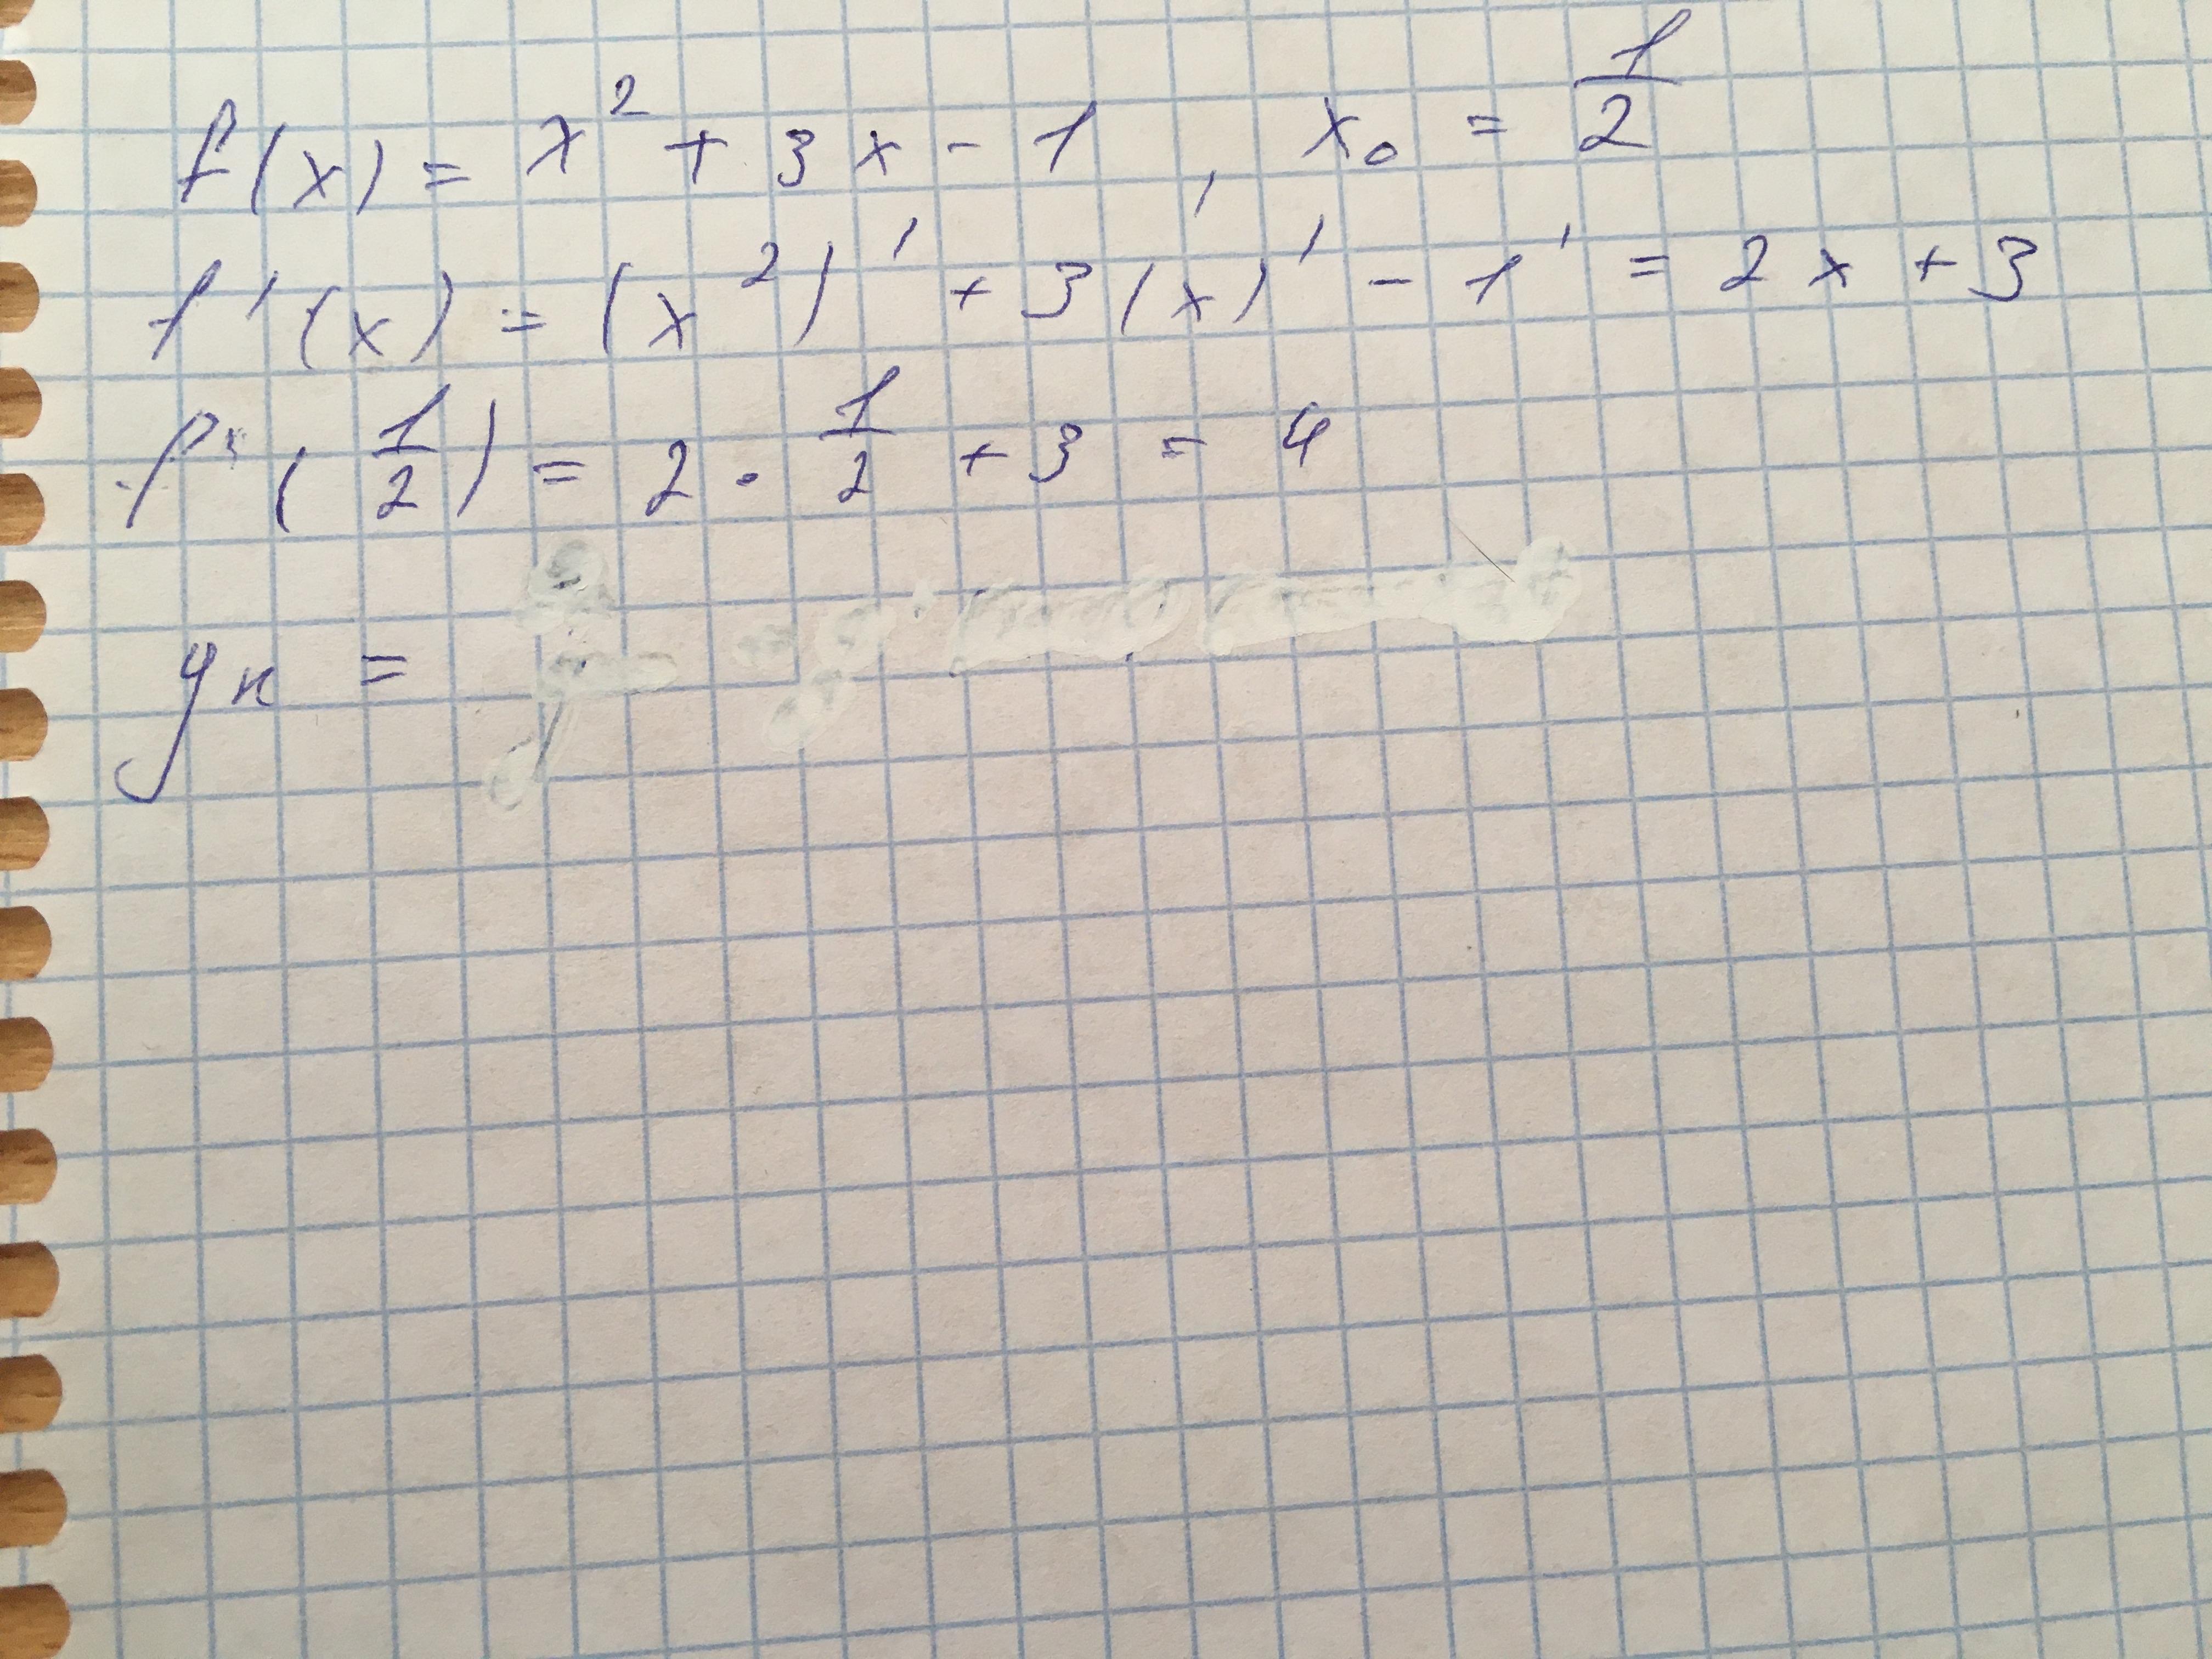 f(x) = x² + 3x - 1, x₀ = 1/2
f'(x) = (x²)' + 3(x)' - 1' = 2x + 3
f'(1/2) = 2 · 1/2 + 3 = 4
yк =